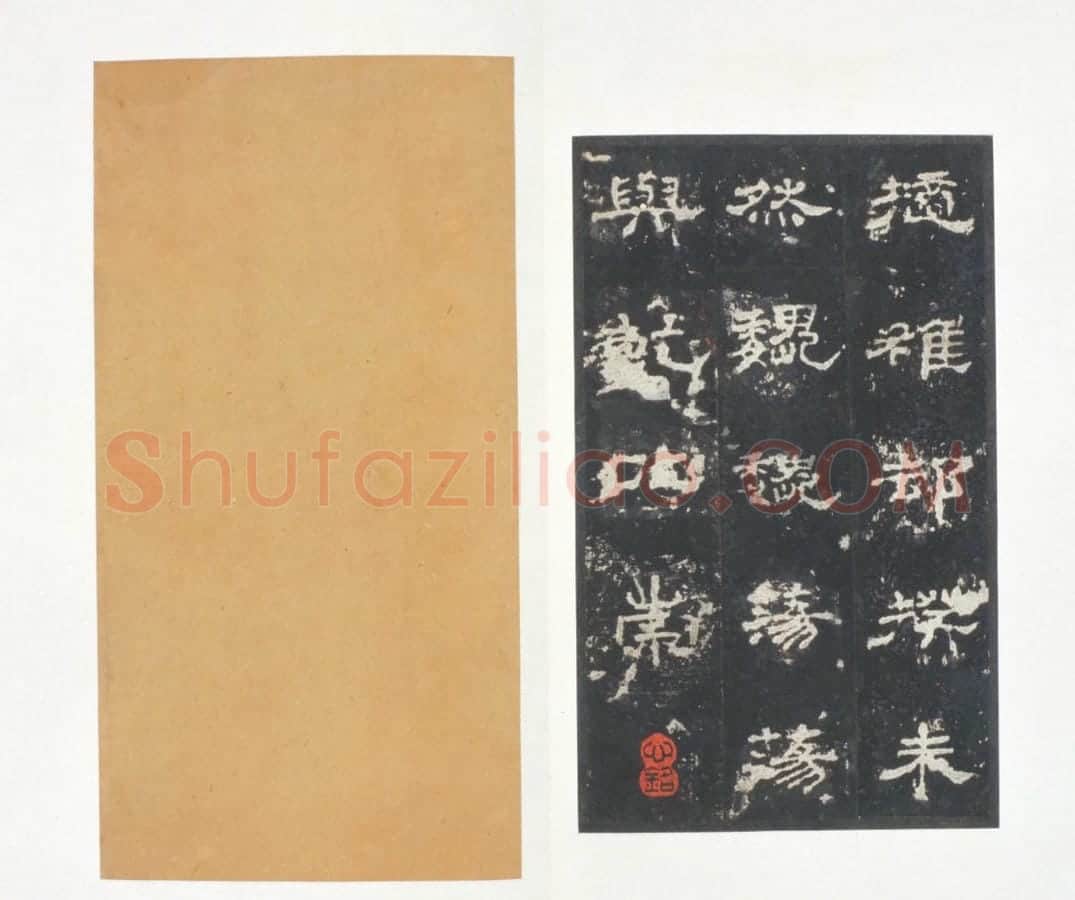 擿雒却揆未
然巍巍蕩蕩
與乾比崇
Shufaziliao.COM